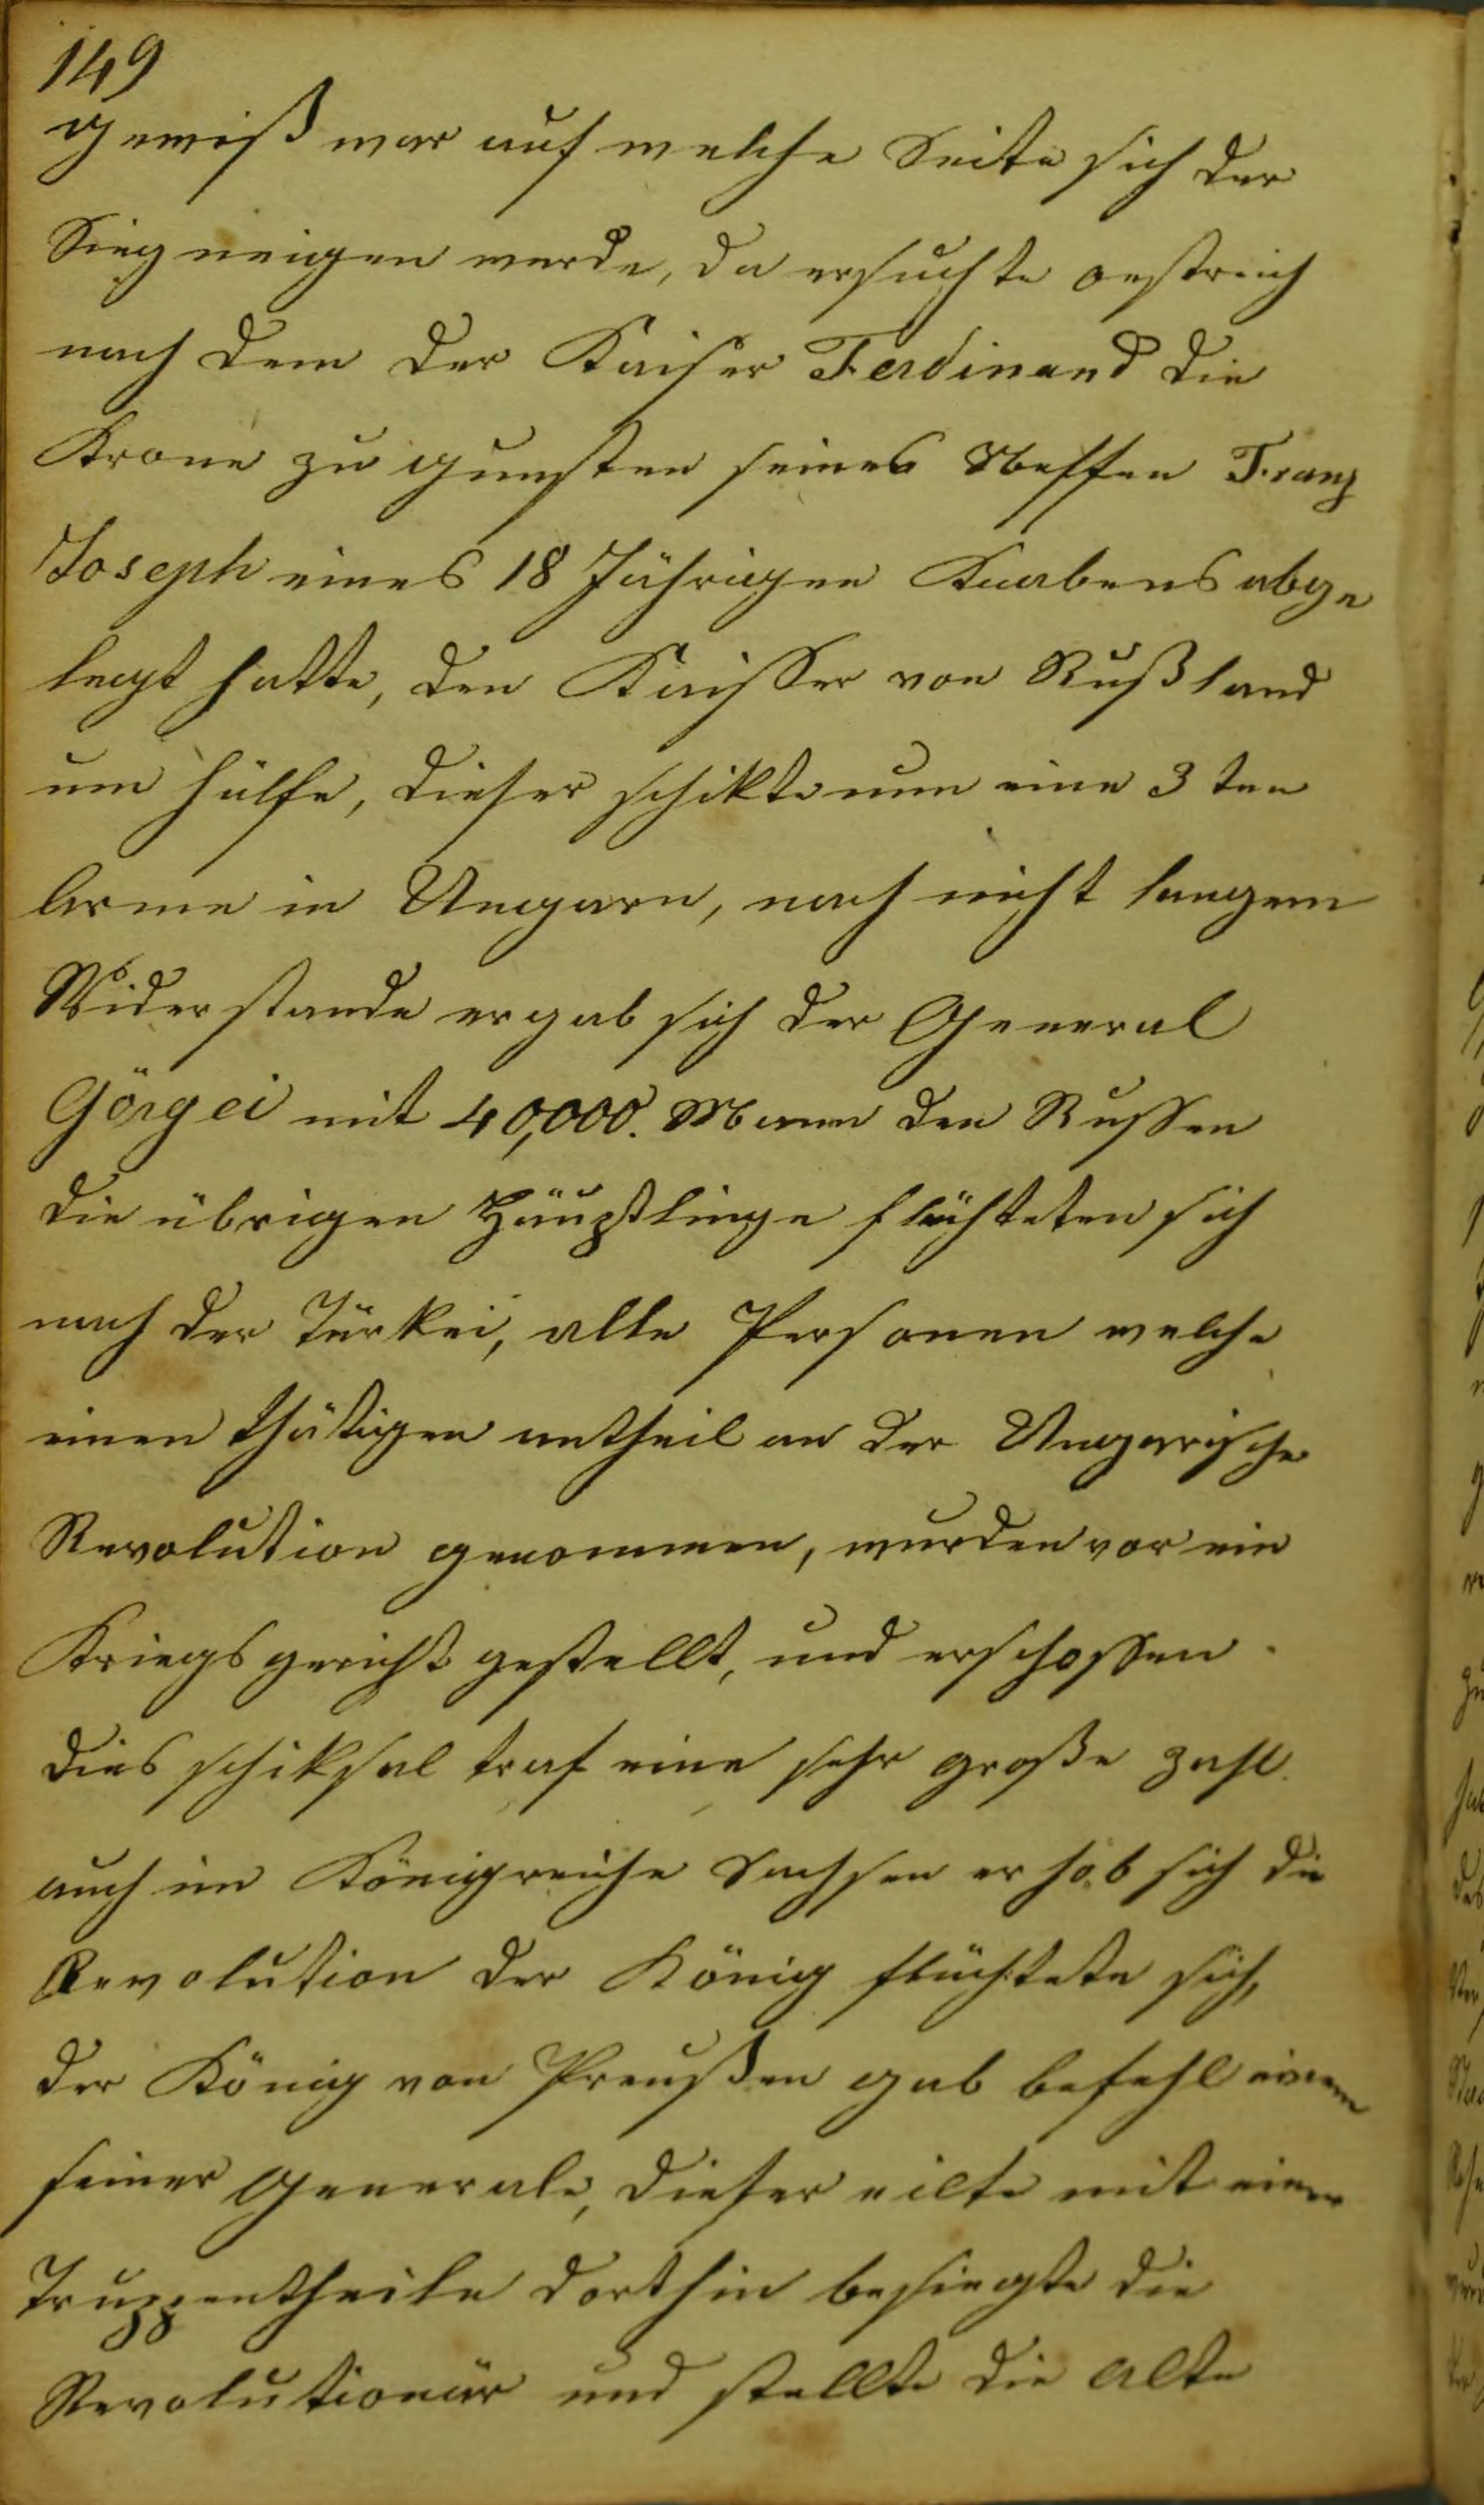 149
gewiß war auf welche Seite sich der
Sieg neigen werde, da ersuchte oestreich
nach dem der Kaiser Ferdinand die
Krone zu gunsten seines Neffen Franz
Joseph eines 18 Jährigen Knabens abge
legt hatte, den Kaisser von Rußland
um hülfe, dieser schikte nun eine 3 ten
Arme in Ungarn, nach nicht langem
Widerstande ergab sich der General
Görgei mit 40,000. Mann den Russen
die übrigen Häuptlinge flüchteten sich
nach der Türkei, alle Personen welche
einen thätigen antheil an der Ungarische
Revolution genommen, wurden vor ein
Kriegsgericht gestellt, und erschossen.
dies schiksal traf eine sehr große zahl.
auch im Königreiche Sachsen erhob sich die
Revolution der König flüchtete sich,
der König von Preußen gab befehl einem
seiner Generale, dieser eilte mit einem
Truppentheile dorthin besiegte die
Revolutionär und stellte die alte